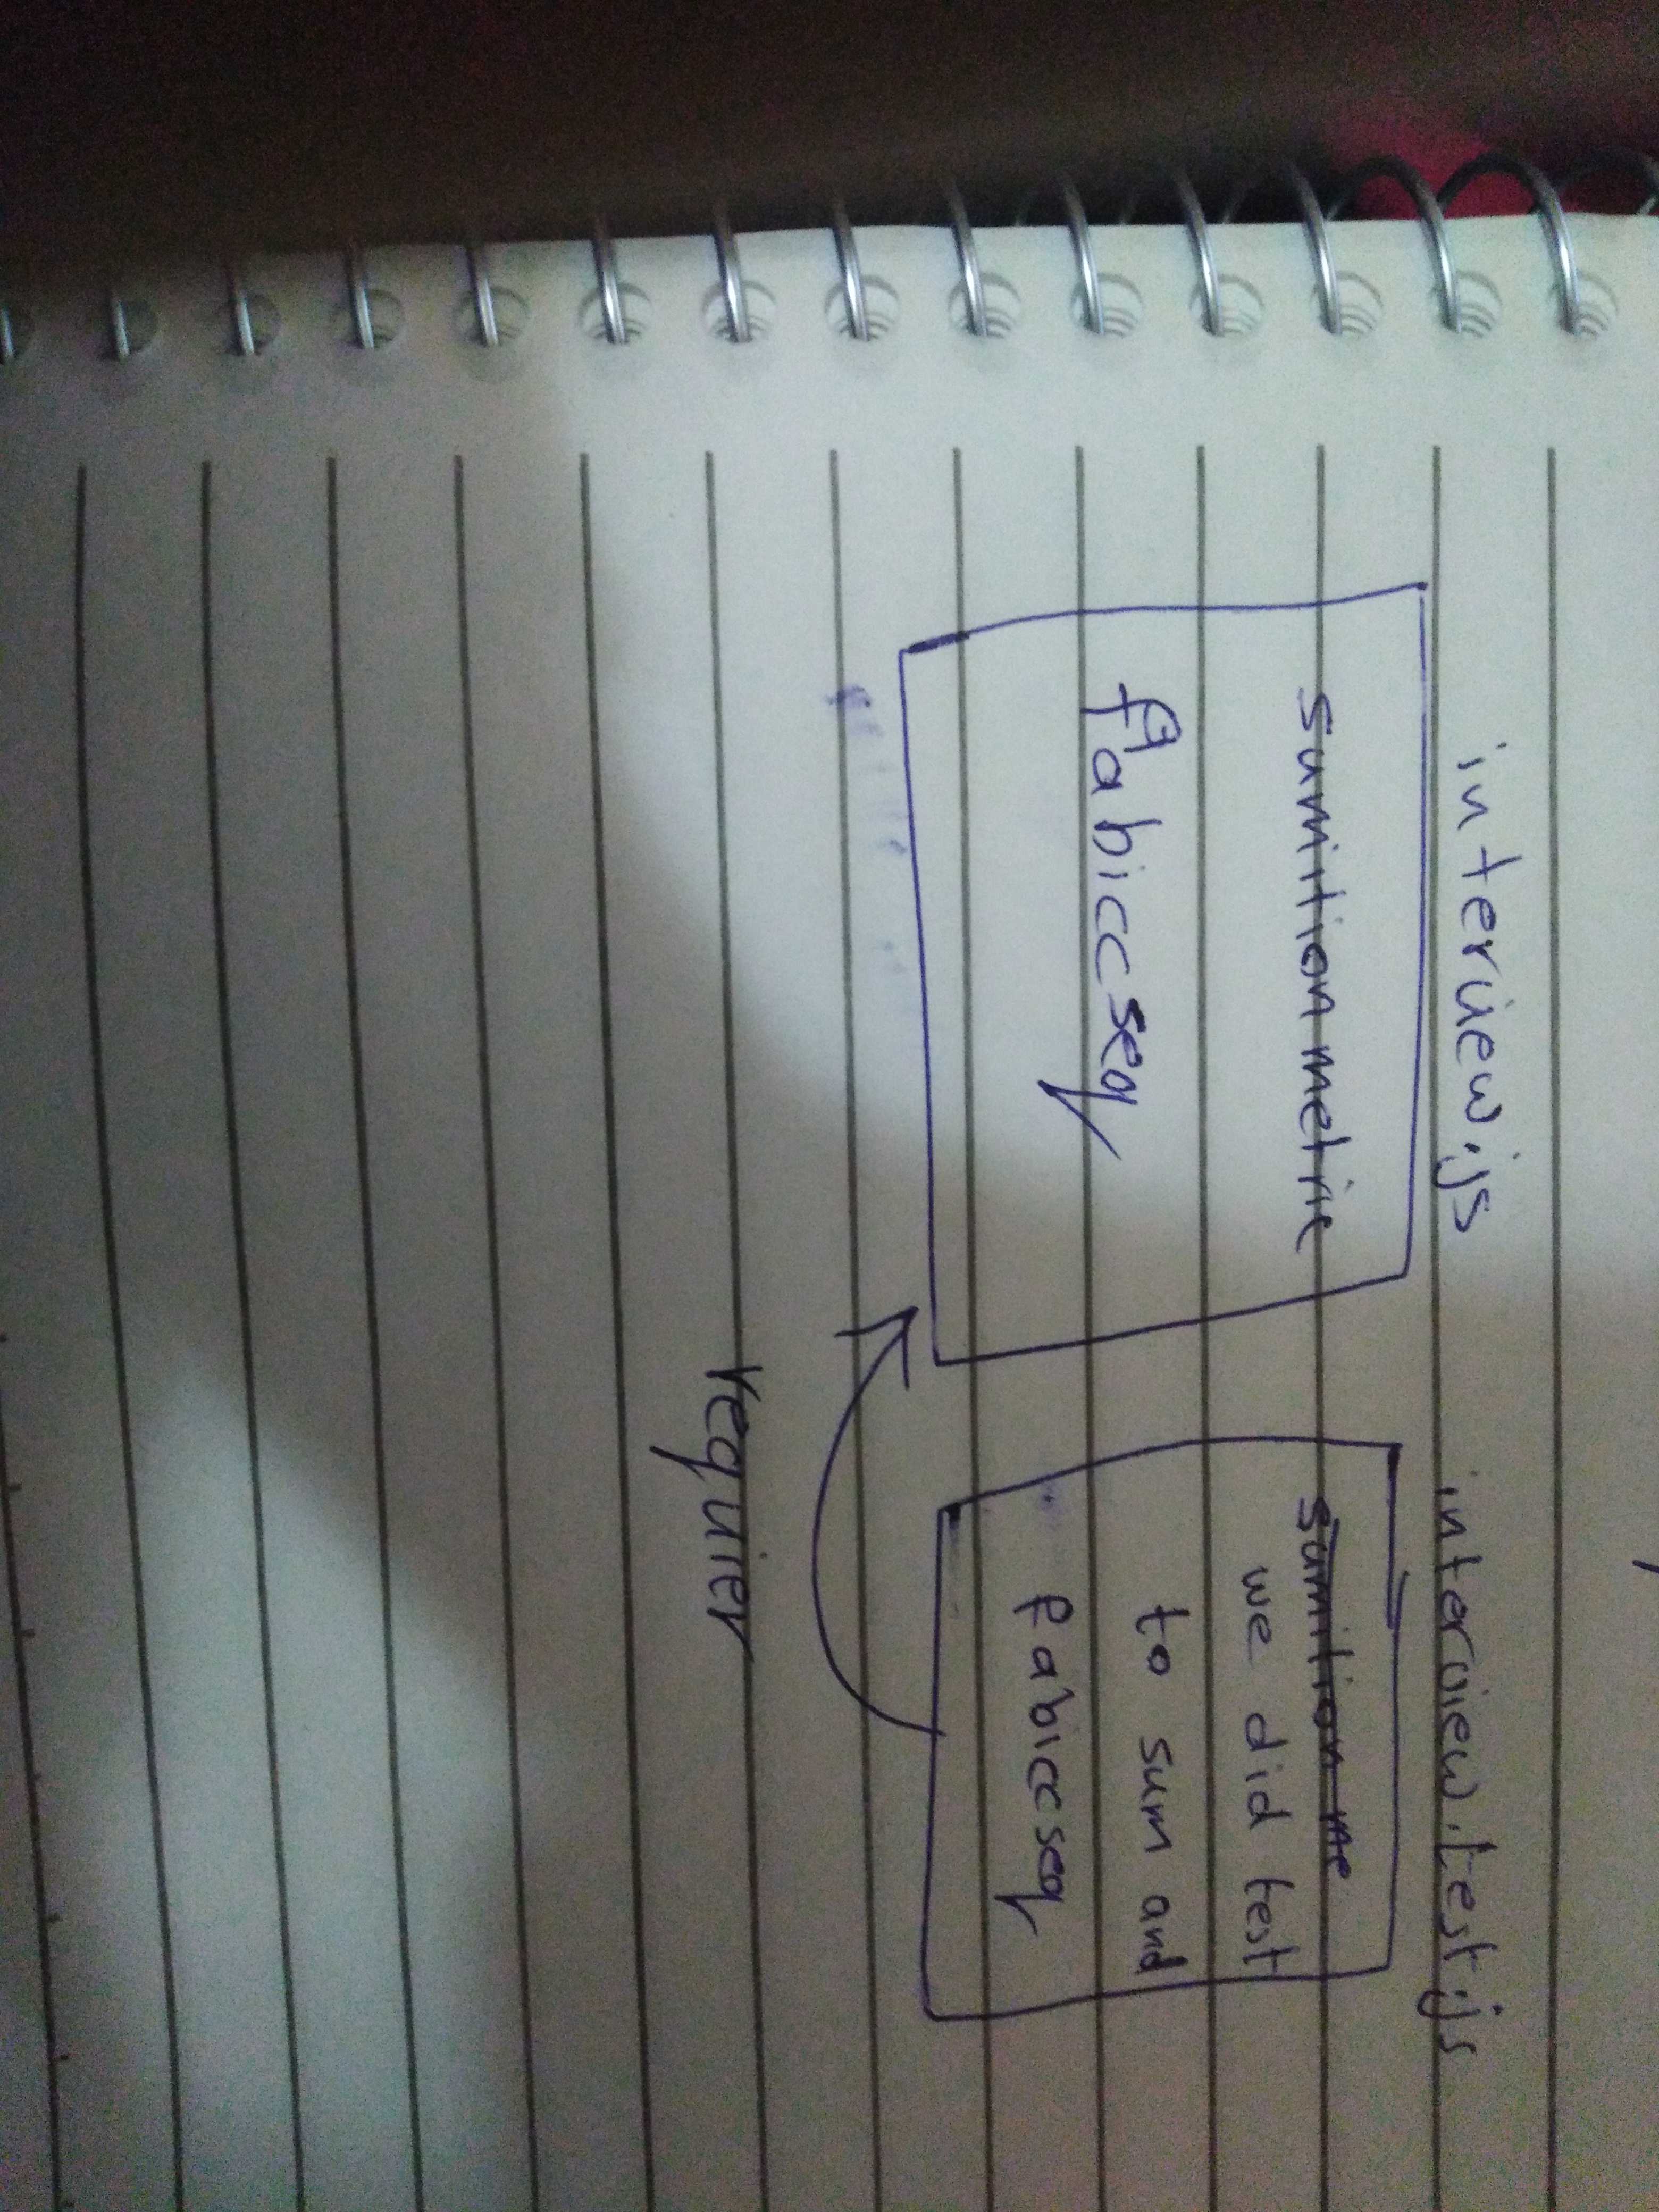 interview.js
sumitionmetric
fabiccseq
interview.test.js
sumitionme
we did test
to sum and
fabiccseq
requier